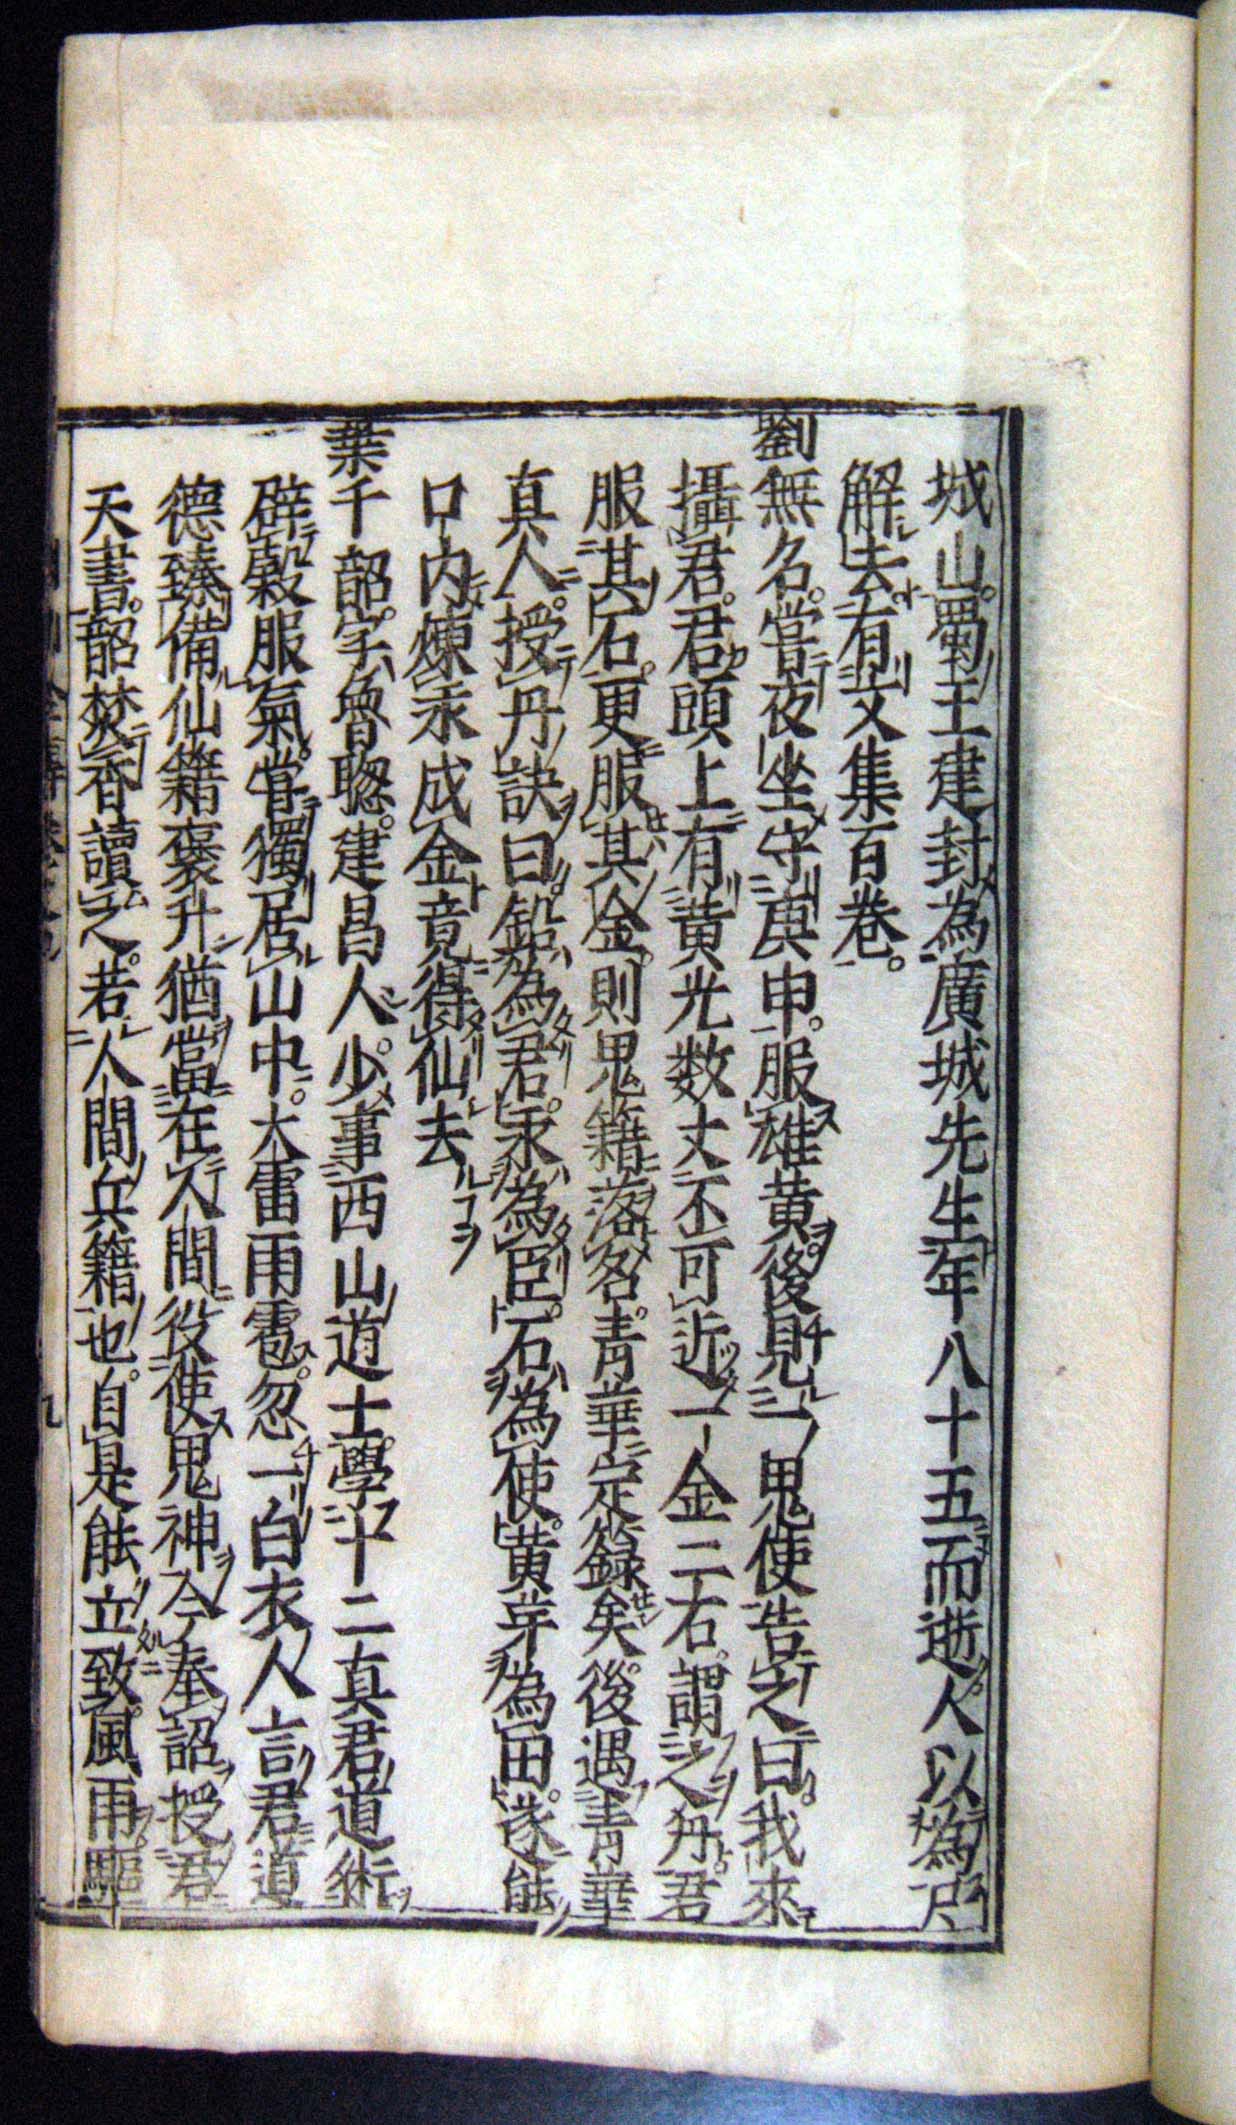 城山。蜀王建封為廣城先生年八十五而逝人以為尸
解去。有文集百卷。
劉無名。嘗夜坐守庚申。服雄黄。後見一鬼使告之曰。我來
攝君。君頭上有黄光数丈不可近一金二石。謂之丹。君
服其石。更服其金。則鬼籍落名。青華定録矣。後遇青華
真人。授丹訣曰。鉛為君。汞為臣。石為使。黄芽為田。遂能
口内煉汞成金竟得仙去
葉千韶。字魯聰。建昌人。少事西山道士。學十二真君道術
辟穀服氣。嘗獨居山中。大雷雨雹。忽一白衣人言君道
德臻備仙籍褒升猶當在人間役使鬼神今奉詔授君
天書。韶焚香讀之。若人間兵籍也。自是能立致風雨驅